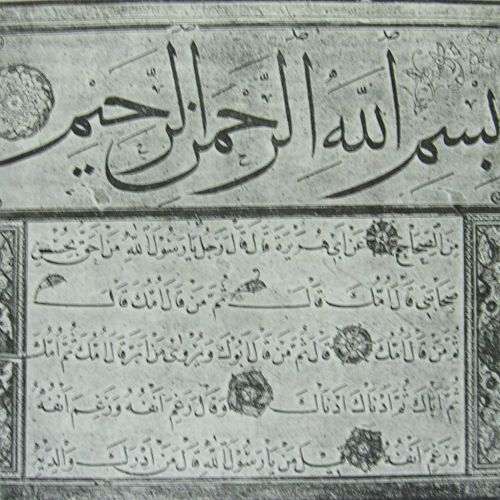 بِسْمِ اللهِ الرَّحْمٰنِ الرَّحِيمِ
مِنَ الصِّحَاحِ عَنْ اَبِي هُرَيْرَةَ قَالَ قَالَ رَجُلٌ يَا رَسُولَ اللهِ مَنْ اَحَقُّ بِحُسْنِ
صَحَابَتِي قَالَ اُمُّكَ قَالَ ثُمَّ مَنْ قَالَ اُمُّكَ قَالَ
ثُمَّ مَنْ قَالَ اُمُّكَ قَالَ ثُمَّ مَنْ قَالَ اَبُوكَ وَيُرْوٰى مَنْ اَبَرُّ قَالَ اُمَّكَ ثُمَّ اُمَّكَ
ثُمَّ اَبَاكَ ثُمَّ اَدْنَاكَ اَدْنَاكَ وَقَالَ رَغِمَ اَنْفُهُ وَرَغِمَ اَنْفُهُ
وَرَغِمَ اَنْفُهُ قِيلَ مَنْ يَا رَسُولَ اللهِ قَالَ مَنْ اَدْرَكَ وَالِدَيْهِ